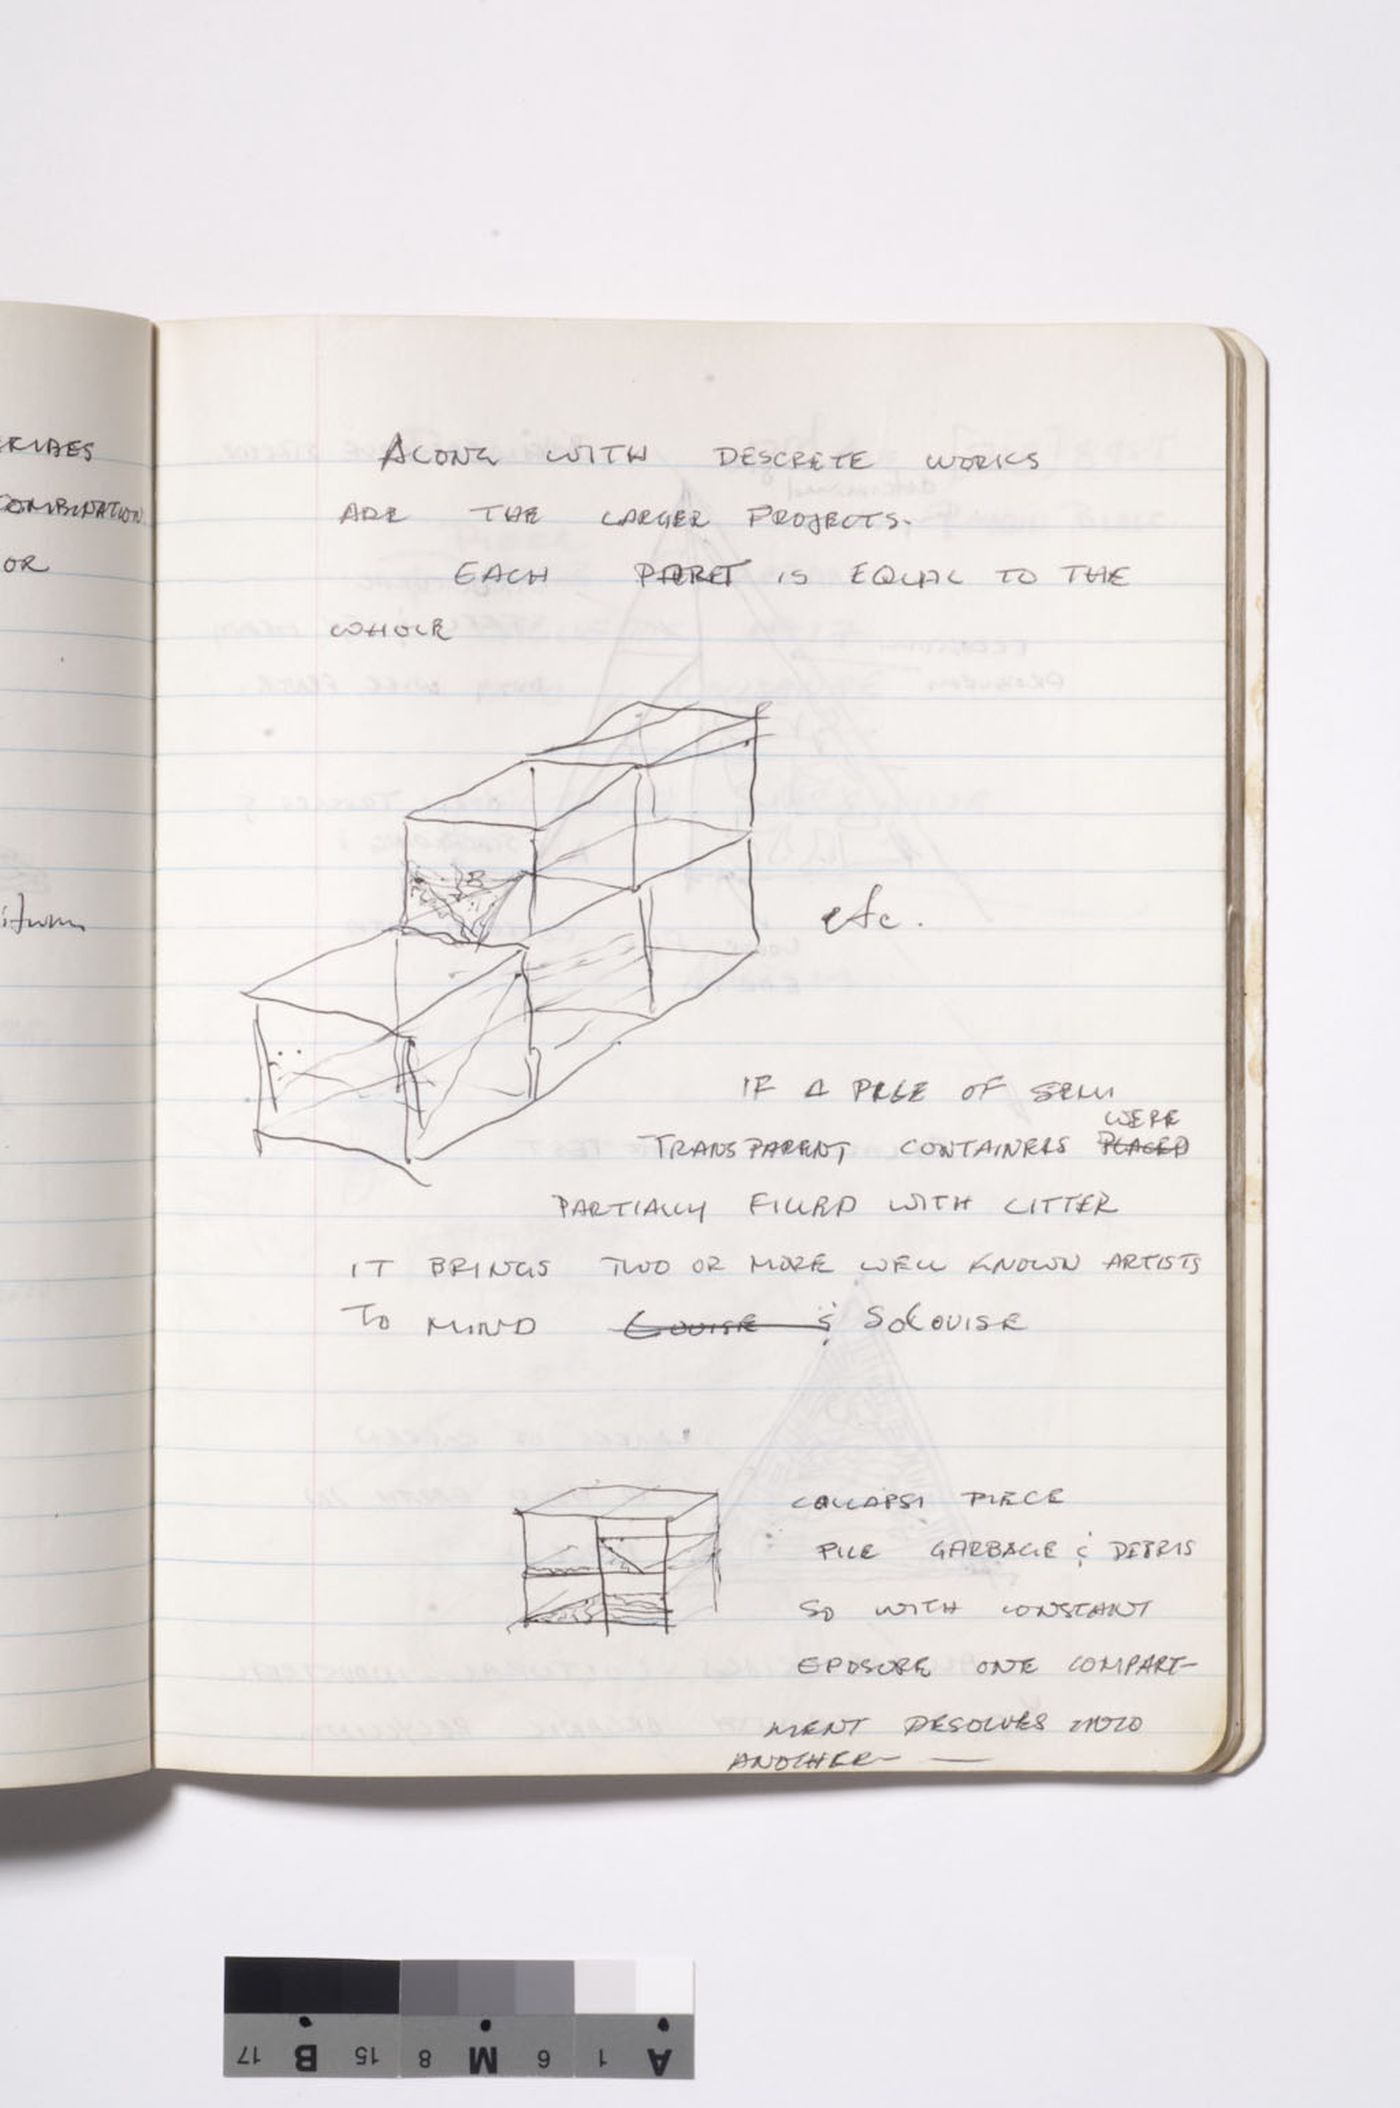 ERIDES
COMBINATION
OR
ALONG WITH DESCRETE WORKS
ARE THE LARGER PROJECTS.
EACH PART IS EQUAL TO THE
WHOLE
etc.
IF A PILE OF SEMI
WERE
TRANSPARENT CONTAINERS PLACED
PARTIALLY FILLED WITH LITTER
IT BRINGS TWO OR MORE WELL KNOWN ARTISTS
TO MIND LOUISE & SOLOUISE
COLLAPSI PIECE
PILE GARBAGE & DEBRIS
SO WITH CONSTANT
EPOSURE ONE COMPART-
MENT DESOLVES INTO
ANOTHER —
17 B 15 8 M 6 1 A